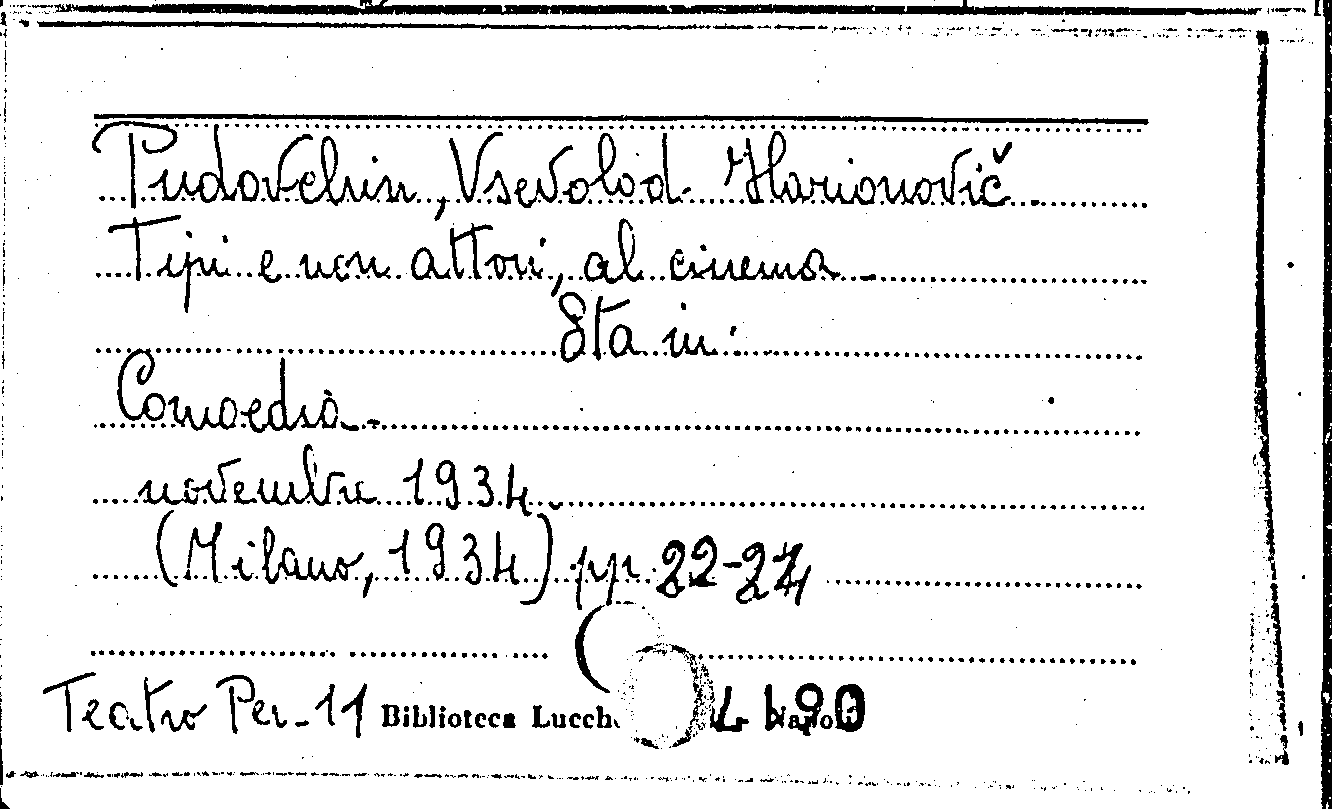 Pudovchin, Vsevolod Ilarionovič
Tipi e non attori, al cinema
Sta in:
Comoedia
novembre 1934
(Milano, 1934) pp. 22-24
Teatro Per. 11 Biblioteca Lucch Napoli